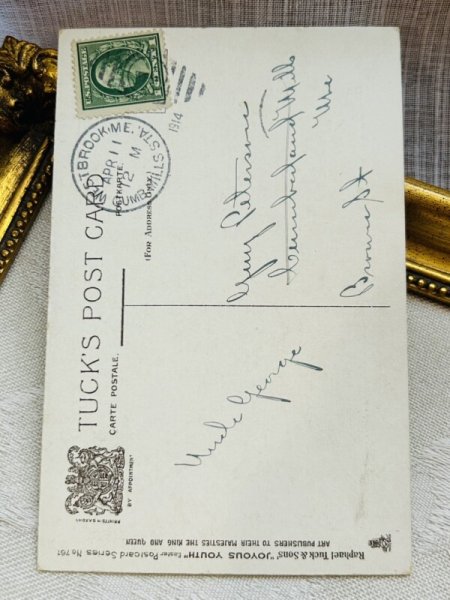 TUCK'S POST CARD
CARTE POSTALE.
POSTKARTE.
(FOR ADDRESS ONLY.)
BY APPOINTMENT
U.S. POSTAGE
WESTBROOK, ME.
APR 11
12 M
1914
CUMB. MILLS STA.
Uncle George
Guy Peterson
Cumberland Mills
Me
Brown St
Raphael Tuck & Sons' "JOYOUS YOUTH" Easter Postcard Series No. 761
ART PUBLISHERS TO THEIR MAJESTIES THE KING AND QUEEN